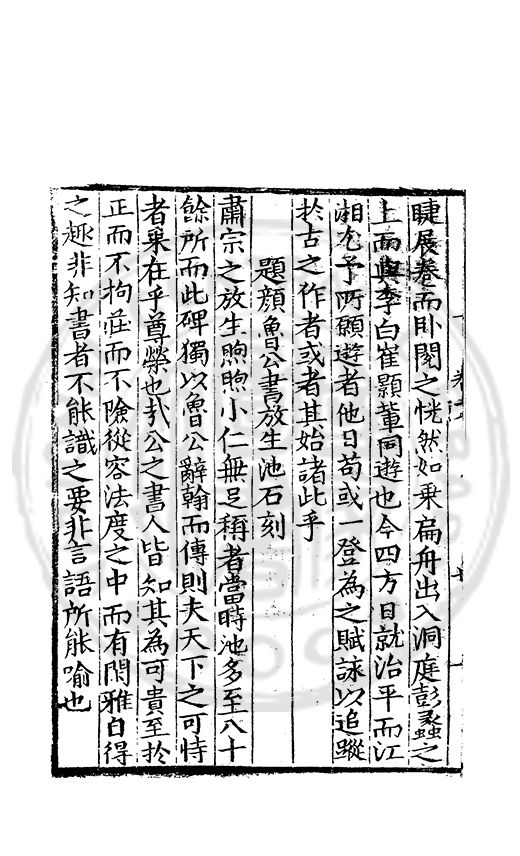 睫展卷而卧閱之恍然如乗扁舟出入洞庭彭蠡之
上而與李白崔顥輩同遊也今四方日就治平而江
湘尤予所願遊者他日苟或一登為之賦詠以追蹤
扵古之作者或者其始諸此乎
題顔魯公書放生池石刻
肅宗之放生煦煦小仁無足稱者當時池多至八十
餘所而此碑獨以魯公辭翰而傳則夫天下之可恃
者果在乎尊榮也㢤公之書人皆知其為可貴至扵
正而不拘莊而不險從容法度之中而有閒雅自得
之趣非知書者不能識之要非言語所能喻也